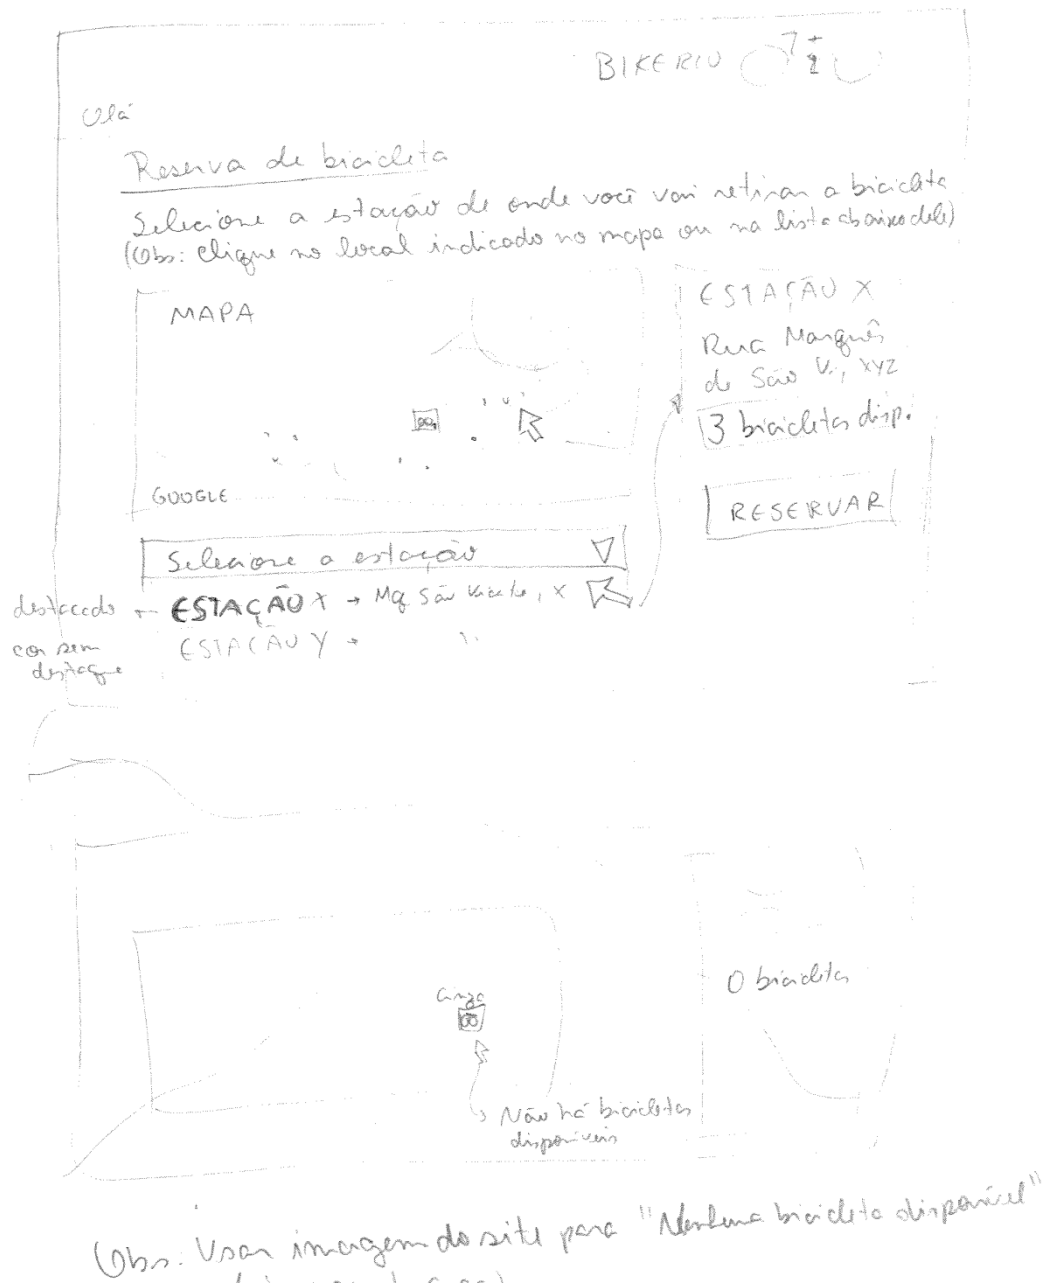 BIKERIO
Olá
Reserva de bicicleta
Selecione a estação de onde você vai retirar a bicicleta
(Obs: Clique no local indicado no mapa ou na lista abaixo dele)
MAPA
GOOGLE
ESTAÇÃO X
Rua Marquês
de São V., XYZ
3 bicicletas disp.
RESERVAR
Selecione a estação
destacado ← ESTAÇÃO X → Mq São Vicente, X
cor sem
destaque
ESTAÇÃO Y → "
Cinza
0 bicicletas
Não há bicicletas
disponíveis
(Obs: Usar imagem do site para "Nenhuma bicicleta disponível"